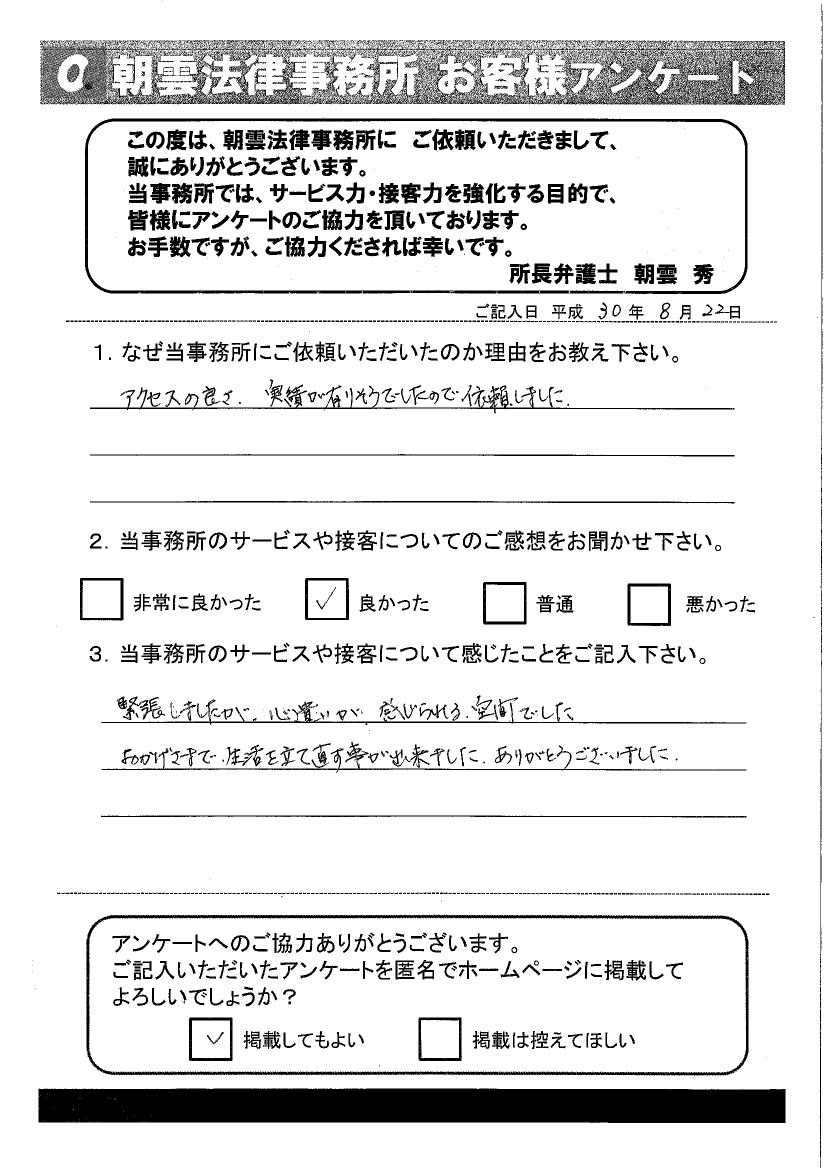 Q. 朝雲法律事務所 お客様アンケート
この度は、朝雲法律事務所に ご依頼いただきまして、
誠にありがとうございます。
当事務所では、サービス力・接客力を強化する目的で、
皆様にアンケートのご協力を頂いております。
お手数ですが、ご協力くだされば幸いです。
所長弁護士 朝雲 秀
ご記入日 平成 30 年 8 月 22 日
1. なぜ当事務所にご依頼いただいたのか理由をお教え下さい。
アクセスの良さ. 実績が有りそうでしたので依頼しました.
2. 当事務所のサービスや接客についてのご感想をお聞かせ下さい。
非常に良かった ✓ 良かった 普通 悪かった
3. 当事務所のサービスや接客について感じたことをご記入下さい。
緊張しましたが、心遣いが 感じられる 空間でした
おかげさまで、生活を立て直す事が出来ました. ありがとうございました.
アンケートへのご協力ありがとうございます。
ご記入いただいたアンケートを匿名でホームページに掲載して
よろしいでしょうか?
✓ 掲載してもよい 掲載は控えてほしい